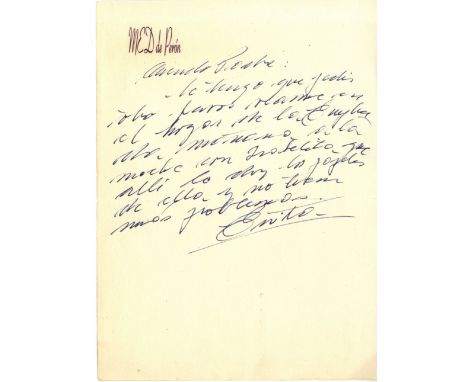 MED de Perón
querido
te tengo que pedir
otro favor
el hogar de la Emplea
da, mañana a la
noche con Isabelita que
alli le doy los papeles
de ella y no tiene
mas problemas.
Evita